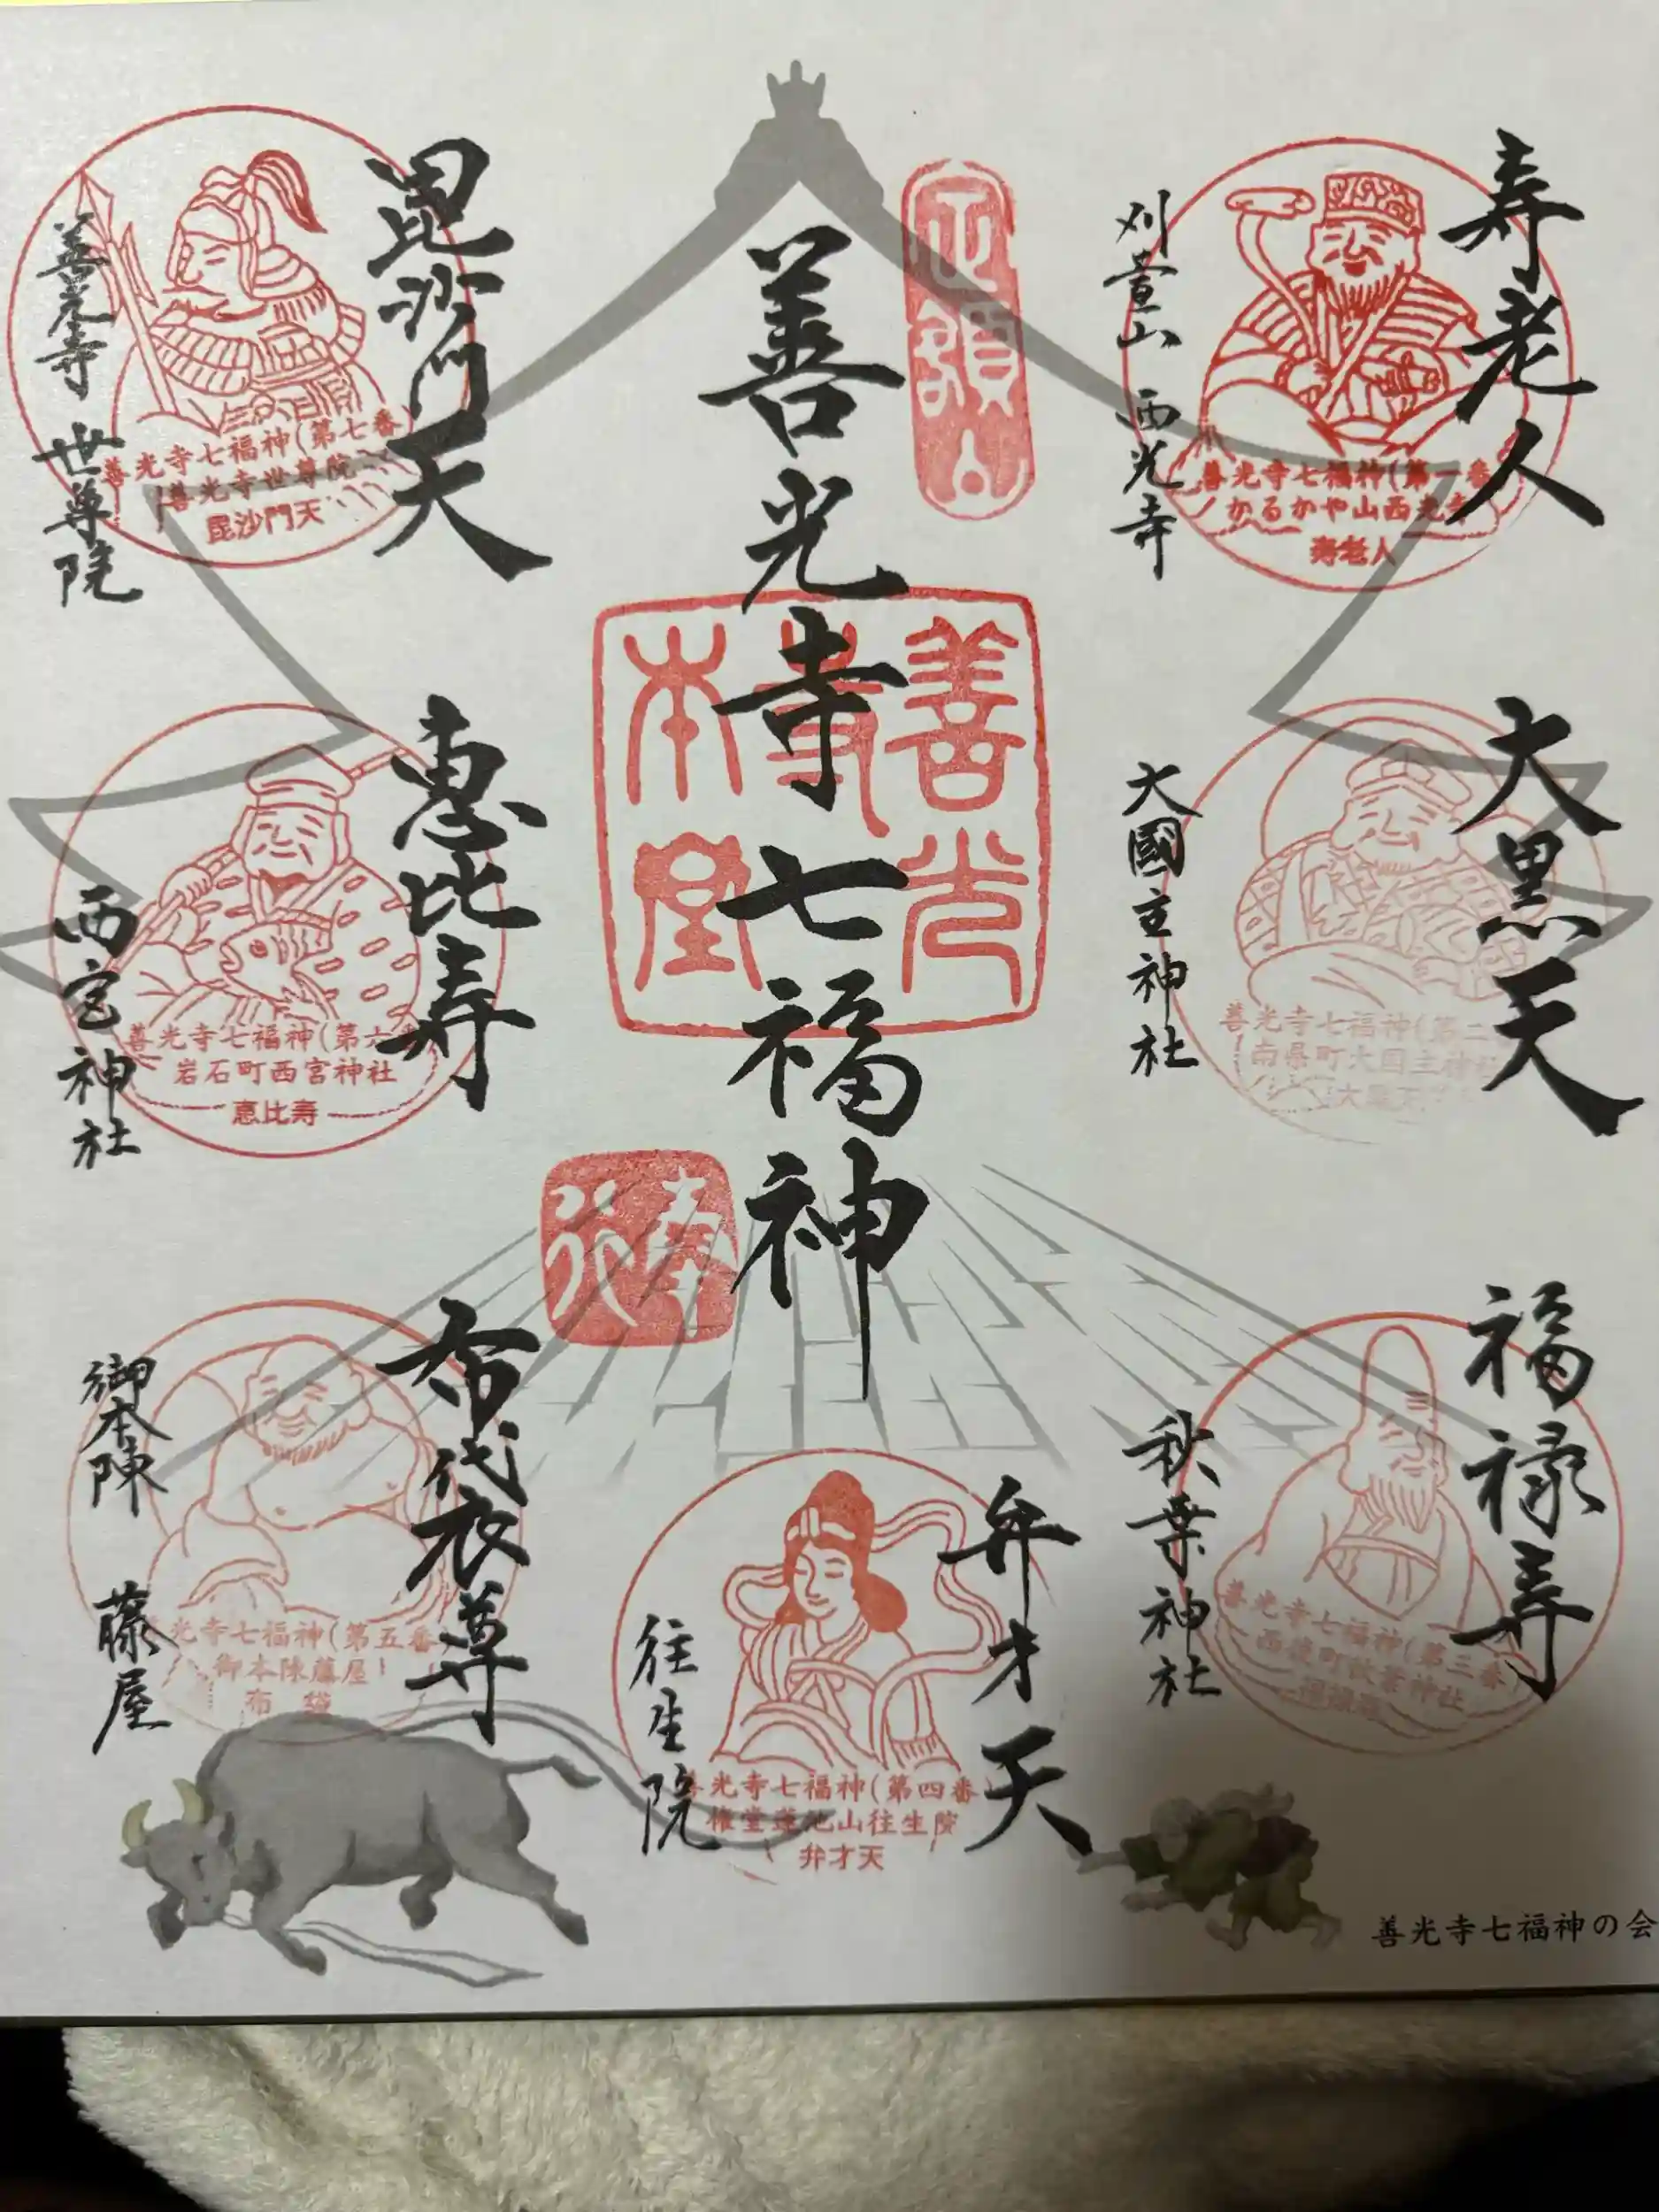 善光寺七福神
定額山
善光寺本堂
奉行
寿老人
刈萱山 西光寺
善光寺七福神(第一番
かるかや山西光寺
寿老人
大黒天
大國主神社
善光寺七福神(第二
南県町大国主神社
大黒天
福禄寿
秋葉神社
善光寺七福神(第三番
西後町秋葉神社
福禄寿
弁才天
往生院
善光寺七福神(第四番
権堂蓮池山往生院
弁才天
布袋尊
御本陳 藤屋
光寺七福神(第五番
御本陳藤屋
布袋
恵比寿
西宮神社
善光寺七福神(第六番
岩石町西宮神社
恵比寿
毘沙門天
善光寺 世尊院
善光寺七福神(第七番
善光寺世尊院
毘沙門天
善光寺七福神の会